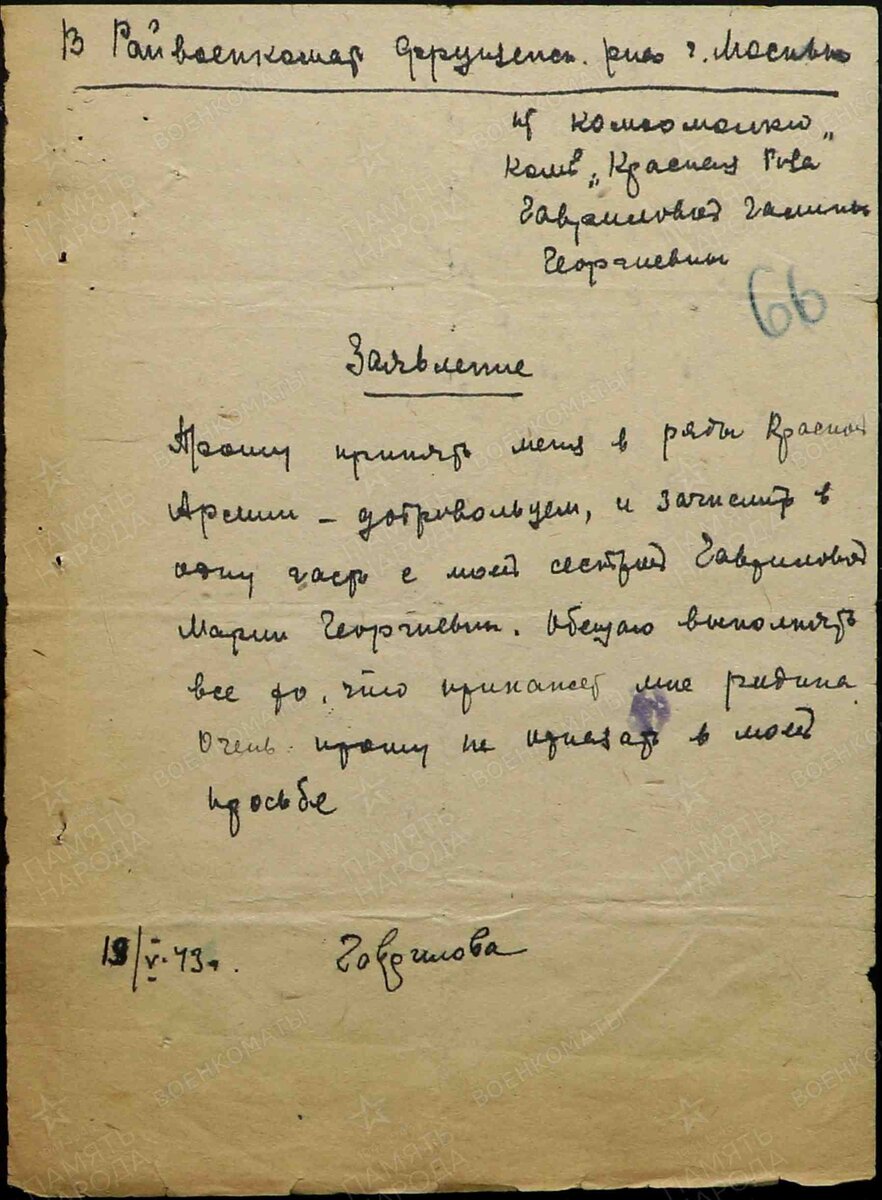 В Райвоенкомат Фрунзенск. р-на г. Москвы
от комсомолки
комб. „Красная Роза"
Гавриловой Галины
Георгиевны
66
Заявление
Прошу принять меня в ряды Красной
Армии – добровольцем, и зачислить в
одну часть с моей сестрой Гавриловой
Марии Георгиевны. Обещаю выполнять
все то, что прикажет мне родина
Очень прошу не отказать в моей
просьбе
19/V-43г. Гаврилова